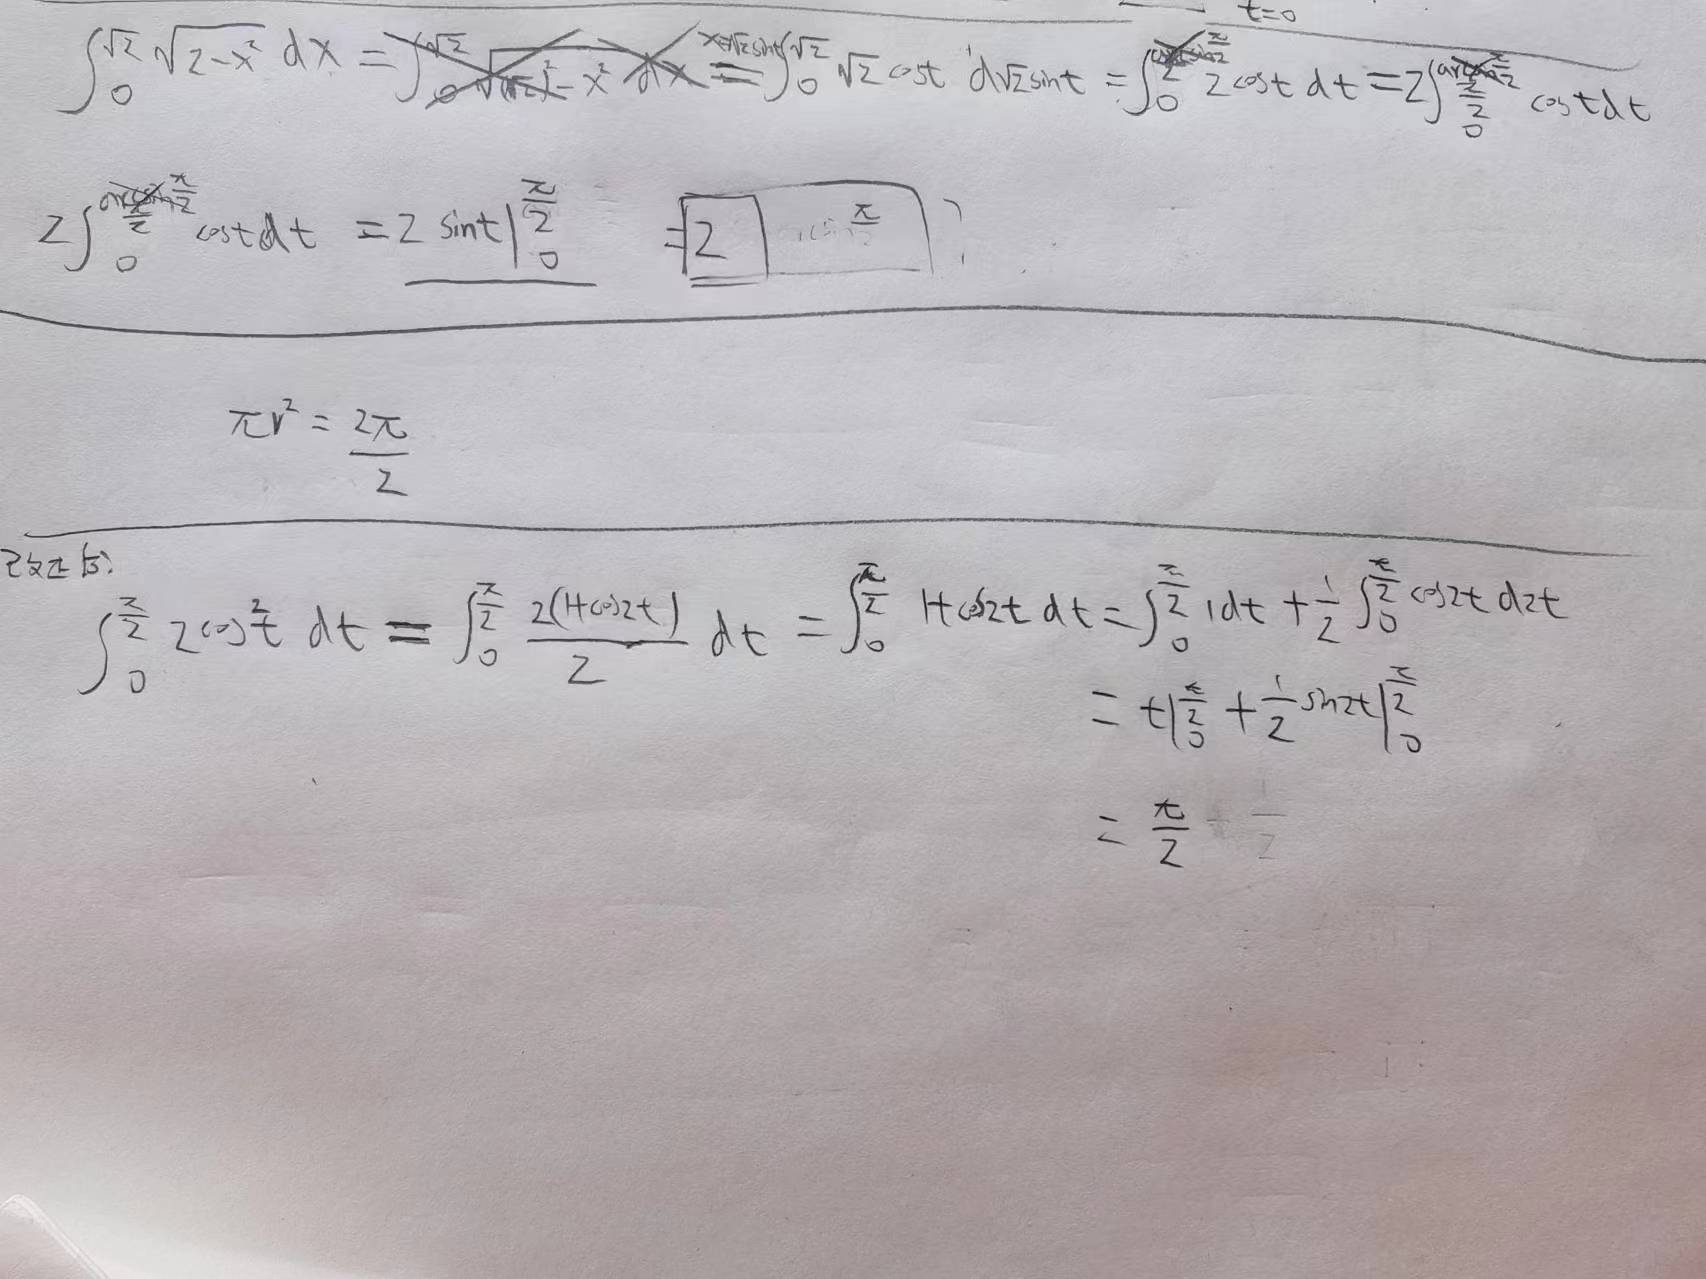 t=0
∫₀^√2 √(2-x²) dx = ∫₀^√2 √((√2)²-x²) dx = x=√2sint ∫₀^√2 √2 cost d√2sint = ∫₀^(π/2) 2cost dt = 2∫₀^(π/2) cost dt
2∫₀^(π/2) cost dt = 2 sint|₀^(π/2) = 2 ?
πr² = 2π/2
改正后:
∫₀^(π/2) 2cos²t dt = ∫₀^(π/2) 2(1+cos2t)/2 dt = ∫₀^(π/2) 1+cos2t dt = ∫₀^(π/2) 1dt + 1/2 ∫₀^(π/2) cos2t d2t
= t|₀^(π/2) + 1/2 sin2t|₀^(π/2)
= π/2